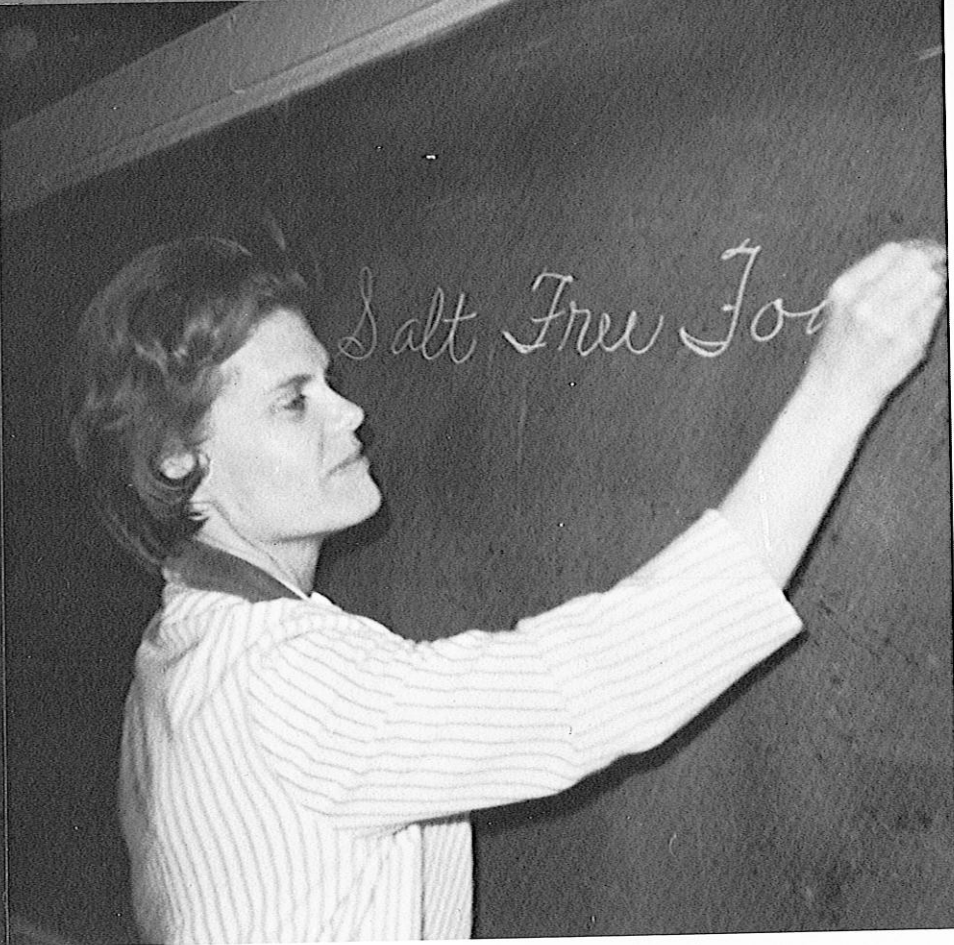 Salt Free Foo